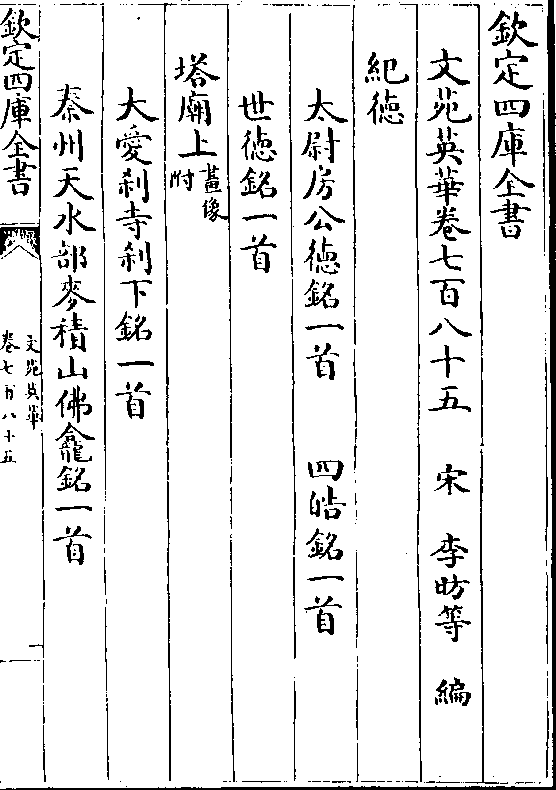 欽定四庫全書
文苑英華卷七百八十五　宋　李昉等　編
紀德
太尉房公德銘一首　四皓銘一首
世德銘一首
塔廟上畫像附
大愛刹寺刹下銘一首
秦州天水郡麥積山佛龕銘一首
欽定四庫全書
文苑英華
卷七百八十五
一